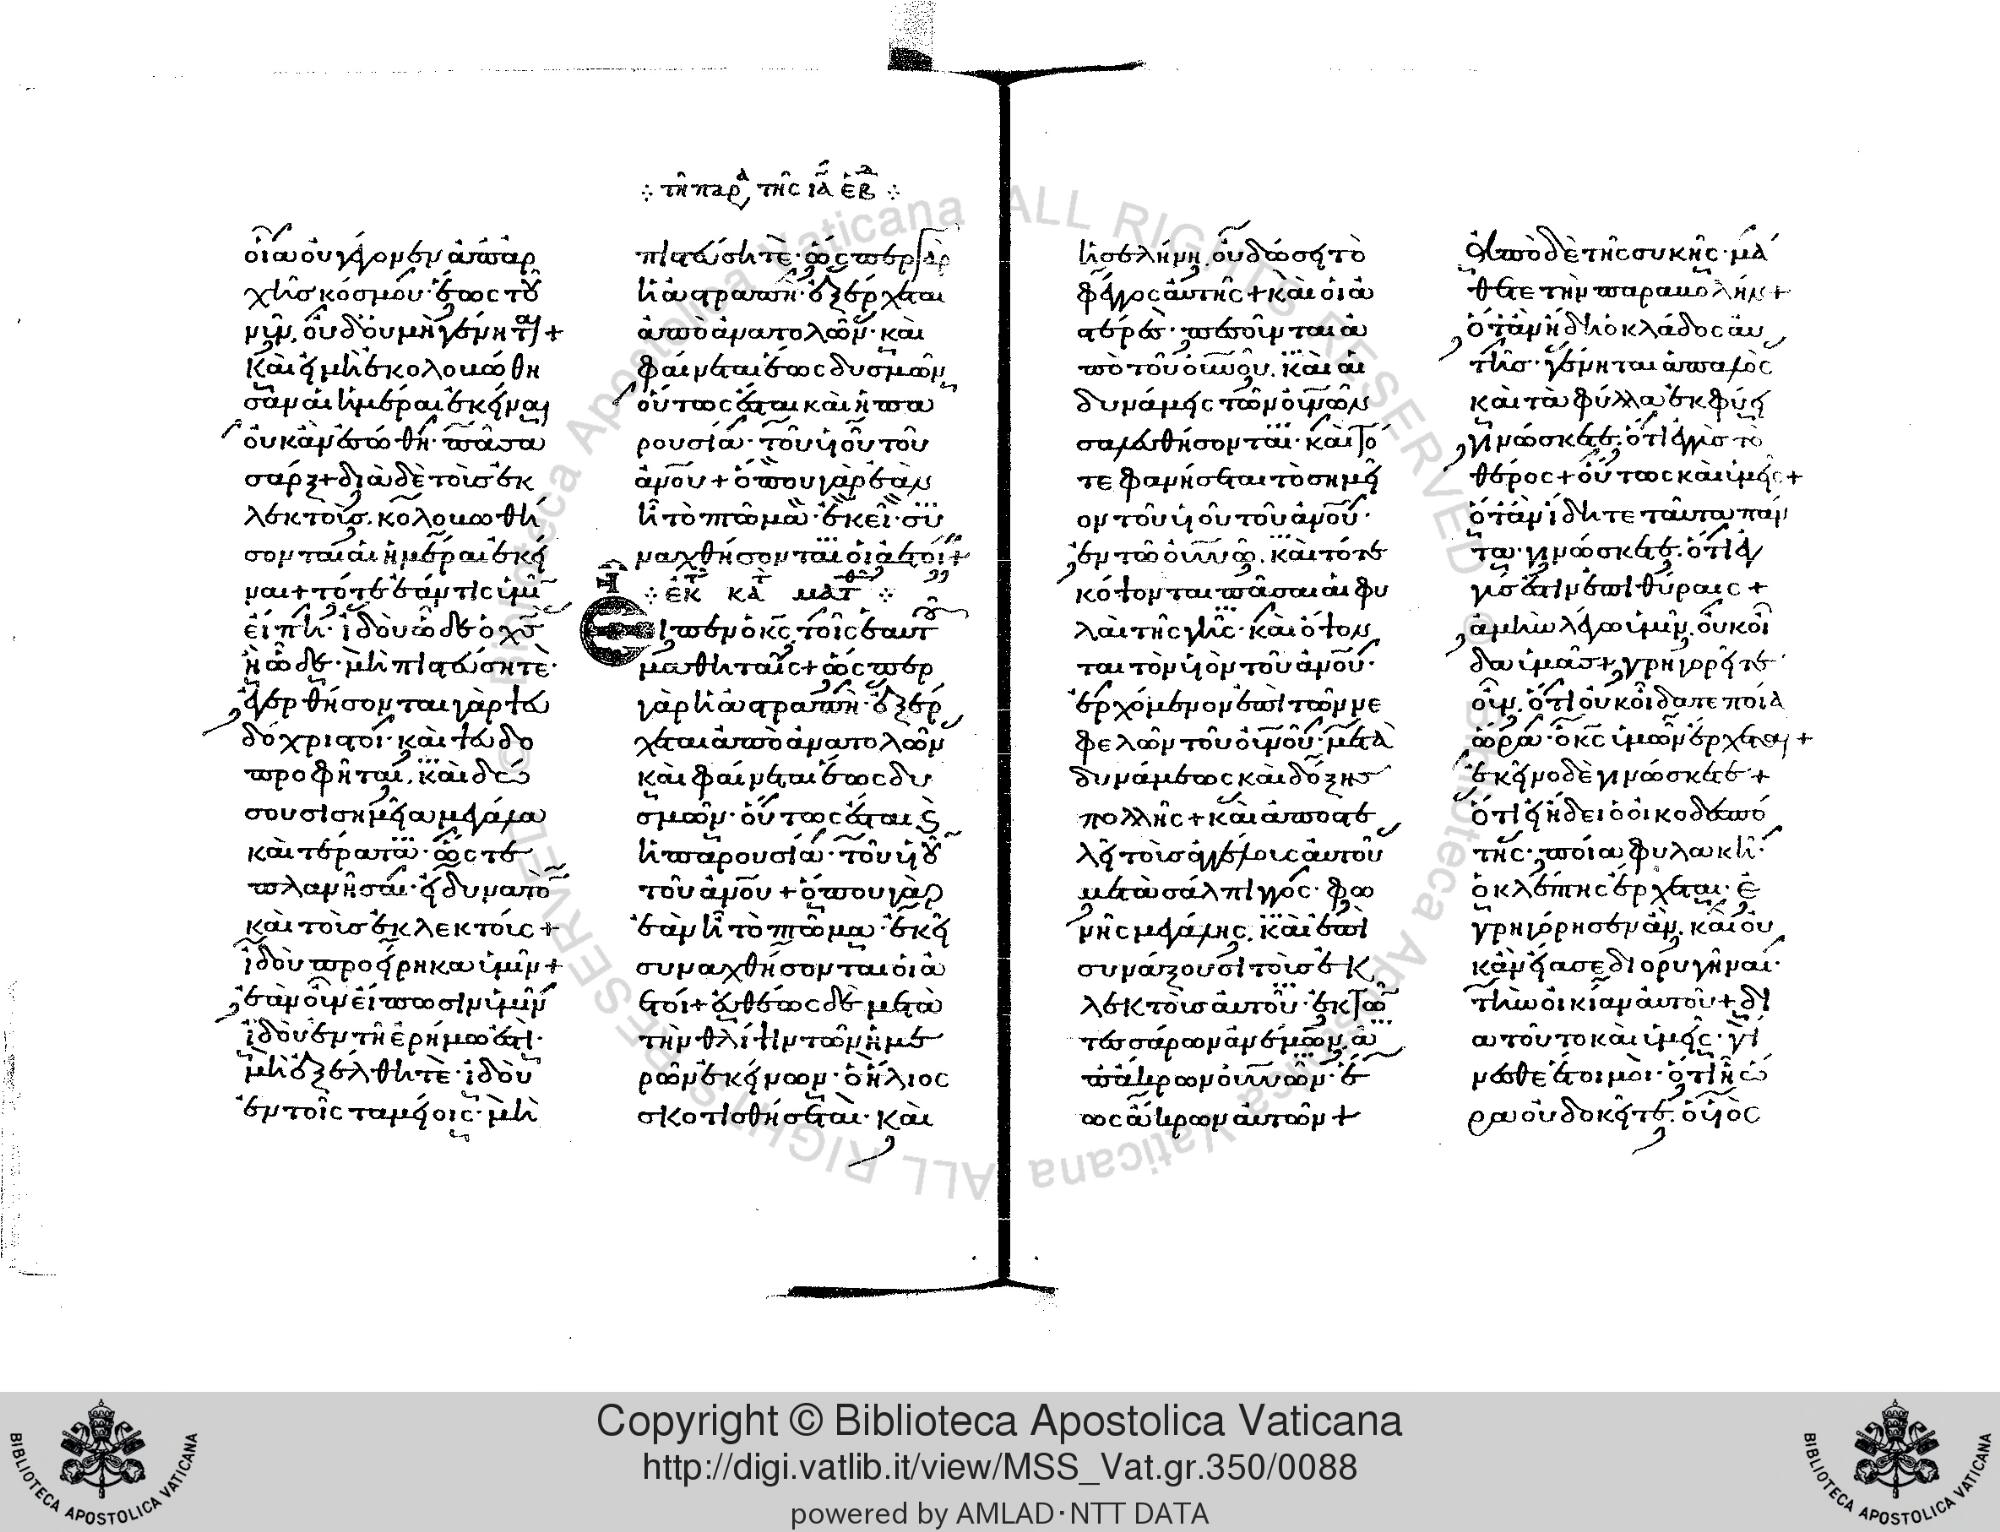 τῆ παρ τῆς ια εβ
οἵα οὐ γέγονεν ἀπ' ἀρ
χῆς κόσμου· ἕως τοῦ
νῦν, οὐδ' οὐ μὴ γένηται+
καὶ εἰ μὴ ἐκολοβώθη
σαν αἱ ἡμέραι ἐκεῖναι
οὐκ ἂν ἐσώθη· πᾶσα
σάρξ+ διὰ δὲ τοὺς ἐκ
λεκτούς. κολοβωθή
σονται αἱ ἡμέραι ἐκεῖ
ναι+ τότε ἐάν τις ὑμῖ
εἴπη· ἰδοὺ ὧδε ὁ χς
ἢ ὧδε· μὴ πιστεύσητε·
ἐγερθήσονται γὰρ ψευ
δόχριστοι· καὶ ψευδο
προφῆται, καὶ δώ
σουσι σημεῖα μεγάλα
καὶ τέρατα· ὥστε
πλανῆσαι· εἰ δυνατὸ
καὶ τοὺς ἐκλεκτούς+
ἰδοὺ προείρηκα ὑμῖν+
ἐὰν οὖν εἴπωσιν ὑμῖν
ἰδοὺ ἐν τῆ ἐρήμω ἐστί·
μὴ ἐξέλθητε· ἰδοὺ
ἐν τοῖς ταμείοις· μὴ
πιστεύσητε· ὥσπερ γὰρ
ἡ ἀστραπὴ· ἐξέρχεται
ἀπὸ ἀνατολῶν· καὶ
φαίνεται ἕως δυσμῶν
οὕτως ἔσται καὶ ἡ πα
ρουσία· τοῦ υἱοῦ τοῦ
ἀνου+ ὅπου γὰρ ἐὰν
ἦ τὸ πτῶμα· ἐκεῖ· συ
ναχθήσονται οἱ ἀετοί+
ἐκ κα ματθ
Εἶπεν ὁ κς τοῖς ἑαυτοῦ
μαθηταῖς+ ὥσπερ
γὰρ ἡ ἀστραπὴ· ἐξέρ
χεται ἀπὸ ἀνατολῶν
καὶ φαίνεται ἕως δυ
σμῶν· οὕτως ἔσται ϛ
ἡ παρουσία· τοῦ υἱοῦ
τοῦ ἀνου+ ὅπου γὰρ
ἐὰν ἦ τὸ πτῶμα· ἐκεῖ
συναχθήσονται οἱ ἀ
ετοί+ εὐθέως δὲ μετὰ
τὴν θλίψιν τῶν ἡμε
ρῶν ἐκείνων· ὁ ἥλιος
σκοτισθήσεται· καὶ
ἡ σελήνη, οὐ δώσει τὸ
φέγγος αὐτῆς+ καὶ οἱ ἀ
στέρες· πεσοῦνται ἀ
πὸ τοῦ οὐνου, καὶ αἱ
δυνάμεις τῶν οὐνῶν
σαλευθήσονται· καὶ τό
τε φανήσεται τὸ σημεῖ
ον τοῦ υἱοῦ τοῦ ἀνου·
ἐν τῶ οὐνω, καὶ τότε
κόψονται πᾶσαι αἱ φυ
λαὶ τῆς γῆς· καὶ ὄψον
ται τὸν υἱὸν τοῦ ἀνου·
ἐρχόμενον ἐπὶ τῶν νε
φελῶν τοῦ οὐνου· μετὰ
δυνάμεως καὶ δόξης
πολλῆς+ καὶ ἀποστε
λεῖ τοὺς ἀγγέλους αὐτοῦ
μετὰ σάλπιγγος· φω
νῆς μεγάλης, καὶ ἐπι
συνάξουσι τοὺς ἐκ
λεκτοὺς αὐτοῦ· ἐκ τῶ
τεσσάρων ἀνέμων, ἀ
π' ἄκρων οὐνων· ἕ
ως ἄκρων αὐτῶν+
Ἀπὸ δὲ τῆς συκῆς· μά
θετε τὴν παραβολήν+
ὅταν ἤδη ὁ κλάδος αὐ
τῆς· γένηται ἁπαλὸς
καὶ τὰ φύλλα ἐκφύει
γινώσκετε, ὅτι ἐγγὺς τὸ
θέρος+ οὕτως καὶ ὑμεῖς+
ὅταν ἴδητε ταῦτα πάν
τα· γινώσκετε, ὅτι ἐγ
γύς ἐστιν ἐπὶ θύραις+
ἀμὴν λέγω ὑμῖν, οὐκ οἶ
δα ὑμᾶς+ γρηγορεῖτε
οὖν, ὅτι οὐκ οἴδατε ποία
ὥρα· ὁ κς ὑμῶν ἔρχεται+
ἐκεῖνο δὲ γινώσκετε+
ὅτι εἰ ἤδει ὁ οἰκοδεσπό
της· ποία φυλακῆ·
ὁ κλέπτης ἔρχεται· ἐ
γρηγόρησεν ἂν, καὶ οὐ
κ ἂν εἴασε διορυγῆναι·
τὴν οἰκίαν αὐτοῦ+ δι
α τοῦτο καὶ ὑμεῖς· γί
νεσθε ἕτοιμοι· ὅτι ἧ ὥ
ρα οὐ δοκεῖτε, ὁ υἱὸς
Copyright © Biblioteca Apostolica Vaticana
http://digi.vatlib.it/view/MSS_Vat.gr.350/0088
powered by AMLAD·NTT DATA